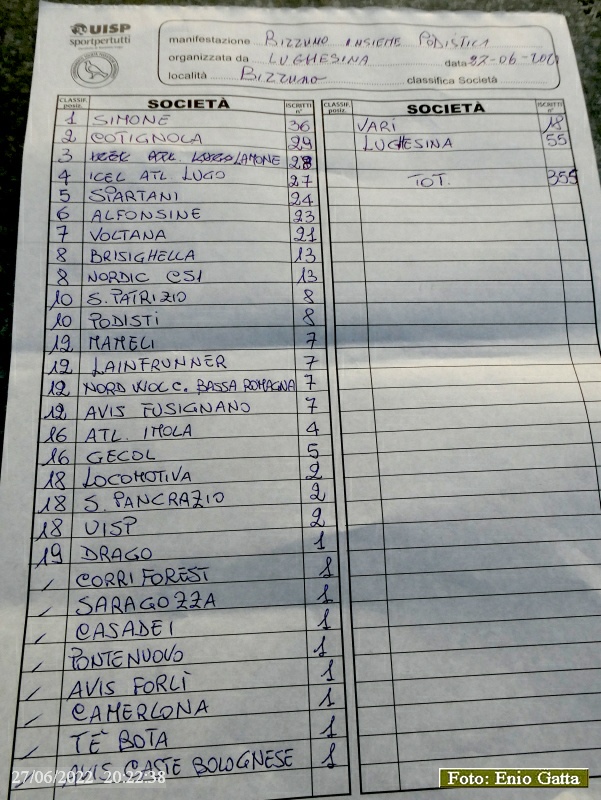 UISP
sportpertutti
manifestazione BIZZUNO INSIEME PODISTICA
organizzata da LUGHESINA data 27-06-202
località BIZZUNO classifica Società
CLASSIF. posiz. SOCIETÀ ISCRITTI n°
1 SIMONE 36
2 COTIGNOLA 29
3 ATL. LAMONE 28
4 ICEL ATL LUGO 27
5 SPARTANI 24
6 ALFONSINE 23
7 VOLTANA 21
8 BRISIGHELLA 13
8 NORDIC CSI 13
10 S. PATRIZIO 8
10 PODISTI 8
12 MAMELI 7
12 LAINFRUNNER 7
12 NORD WOL C. BASSA ROMAGNA 7
12 AVIS FUSIGNANO 7
16 ATL. IMOLA 4
16 GECOL 5
18 LOCOMOTIVA 2
18 S. PANCRAZIO 2
18 UISP 2
19 DRAGO 1
/ CORRI FOREST 1
/ SARAGOZZA 1
/ CASADEI 1
/ PONTENUOVO 1
/ AVIS FORLÌ 1
/ CAMERLONA 1
/ TÈ BOTA 1
/ AVIS CASTE BOLOGNESE 1
CLASSIF. posiz. SOCIETÀ ISCRITTI n°
VARI 18
LUGHESINA 55
TOT. 355
27/06/2022 20:22:38
Foto: Enio Gatta